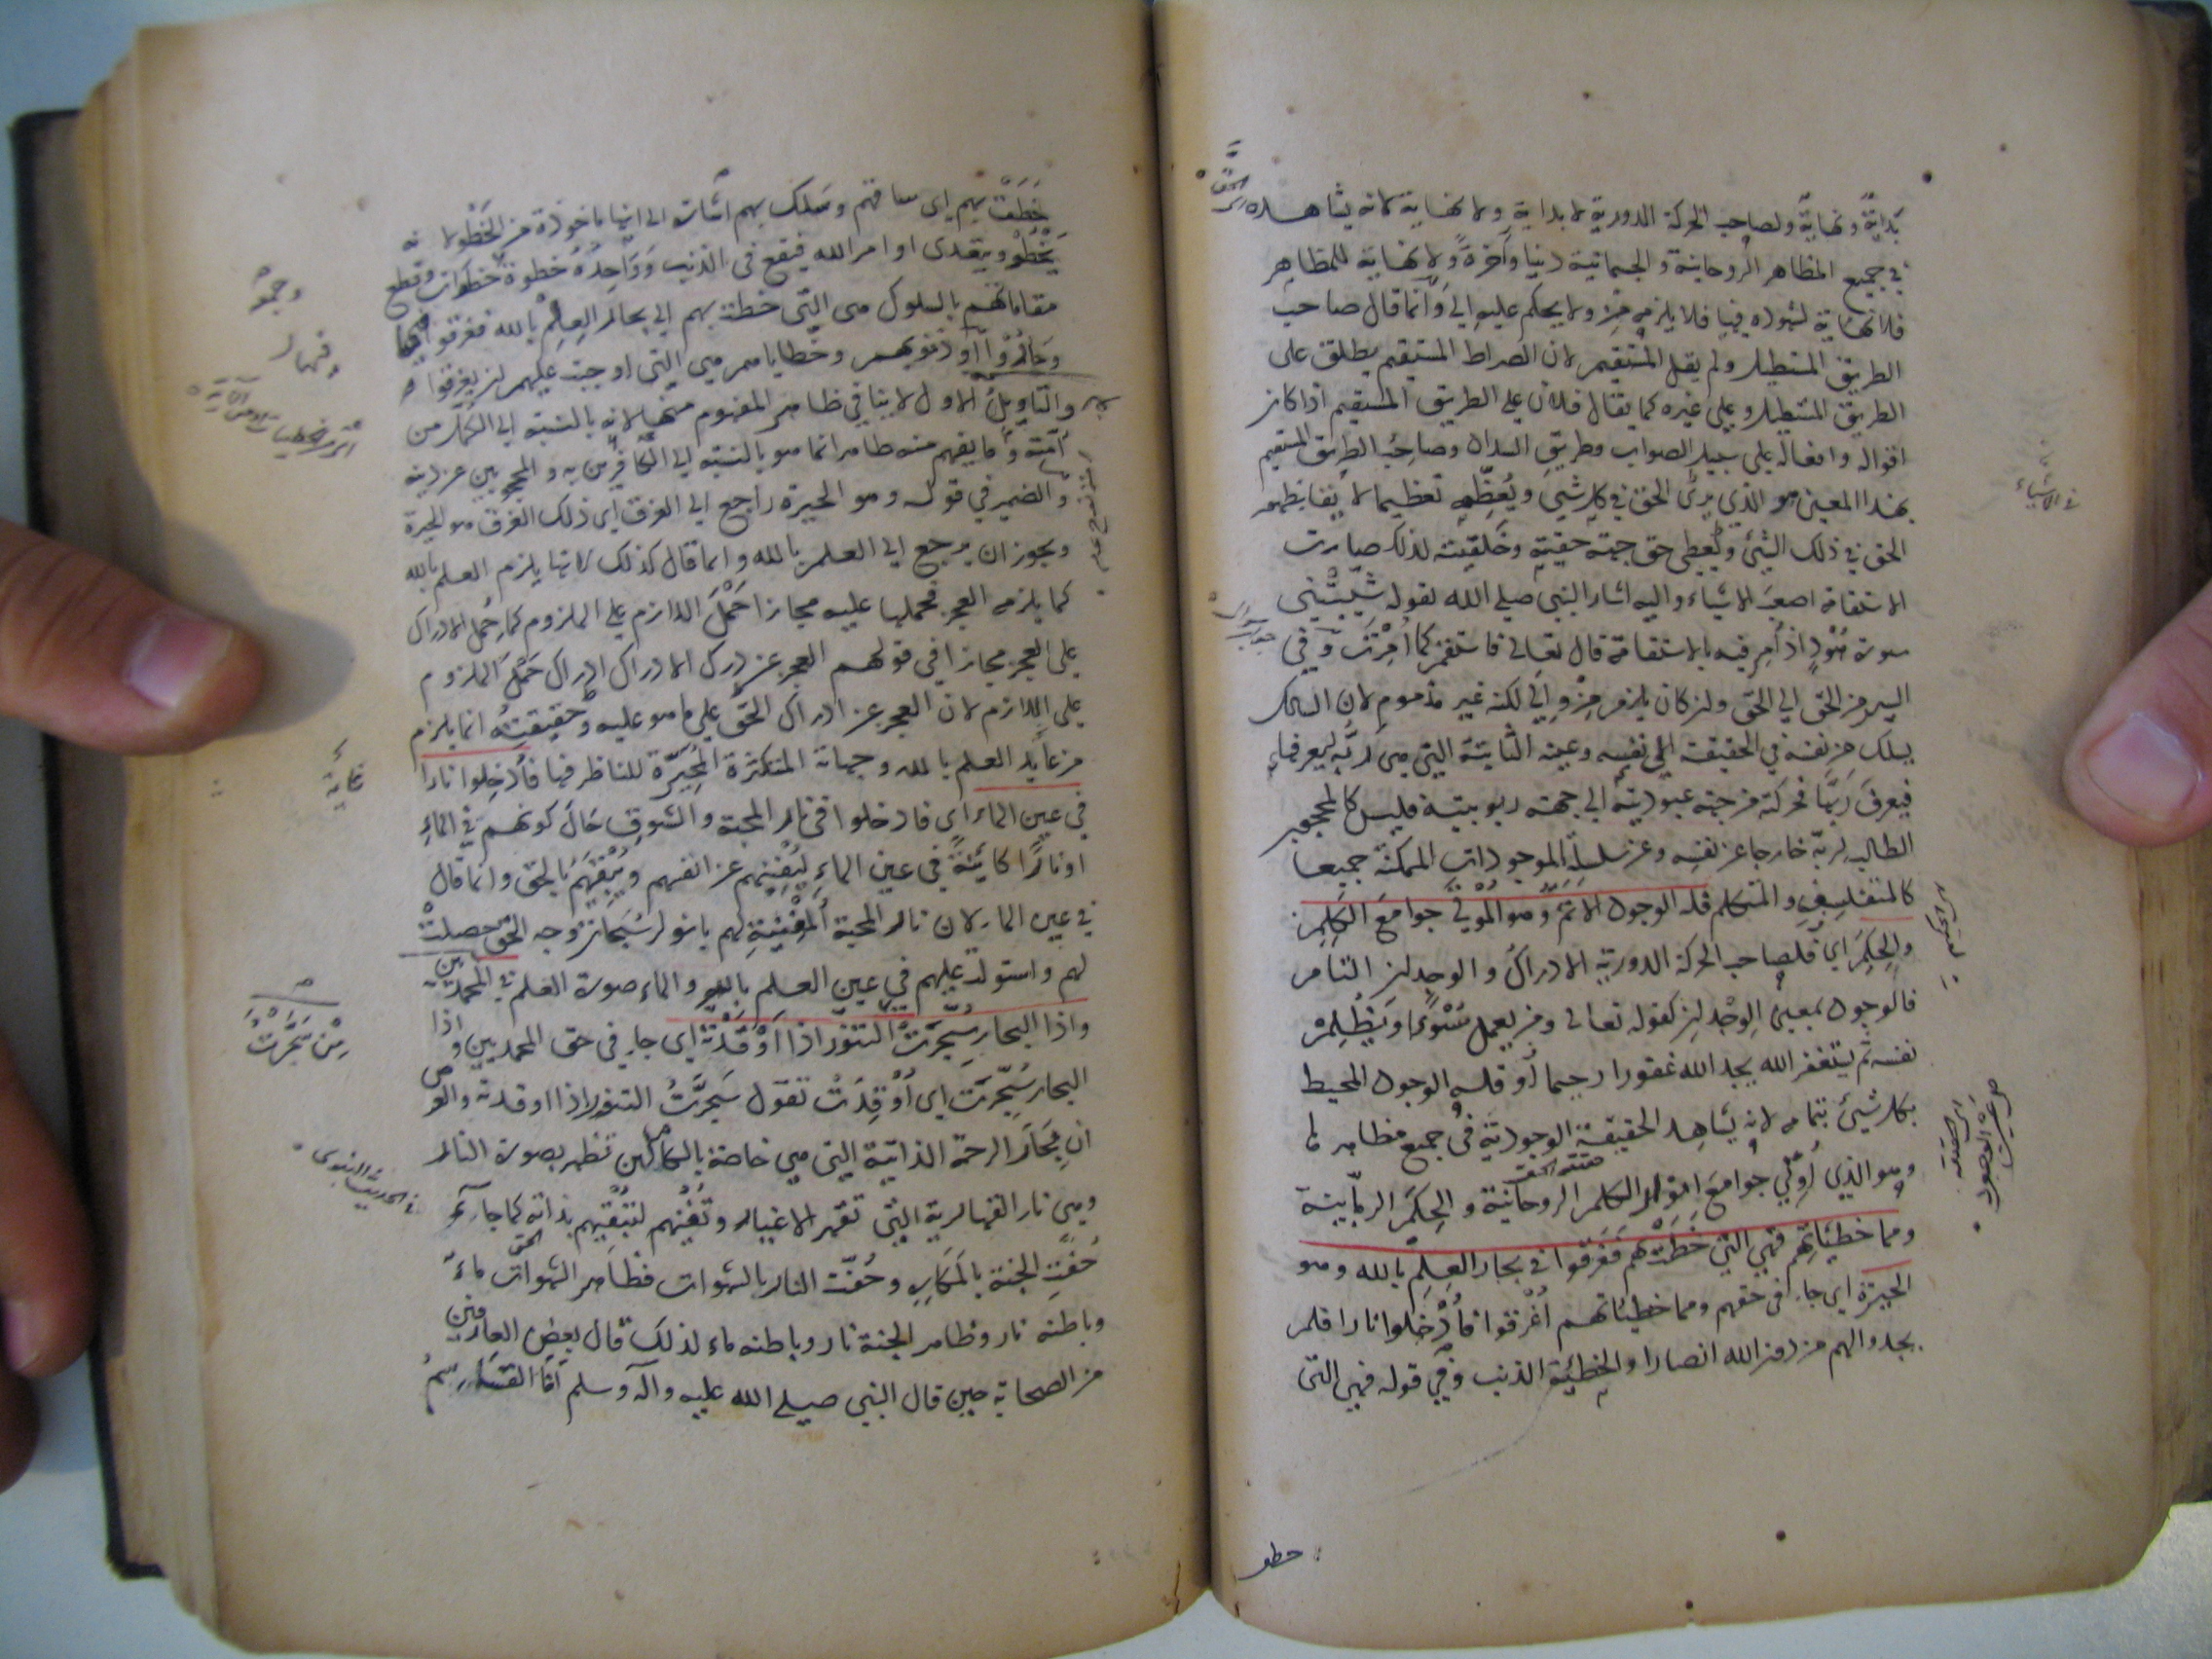 بَدايةٌ ونهايةٌ ولصاحب الحركة الدورية لا بداية ولا نهاية لانه يشاهده
في جميع المظاهر الروحانية والجسمانية دنيا وآخرة ولا نهاية للمظاهر
فلا نهاية لشهوده فيها فلا يلزمه مِن ولا يحكم عليه الى وانما قال صاحب
الطريق المستطيل ولم يقل المستقيم لان الصراط المستقيم يطلق على
الطريق المستطيل وعلى غيره كما يقال فلان على الطريق المستقيم اذا كان
اقواله وافعاله على سبيل الصواب وطريق السداد وصاحب الطريق المستقيم
بهذا المعنى هو الذي يرى الحق في كل شيئ ويُعظّمه تعظيما
الحق في ذلك الشئ ويُعطى حق جهته حقيته وخَلقيته لذلك صارت
الاستقامة اصعبَ الاشياء واليه اشار النبي صلى الله بقوله شيّبتْني
سورة هُوْدٍ اذ أُمِر فيه بالاستقامة قال تعالى فاستقم كما اُمِرْتَ وفي
السير من الحق الى الحق وان كان يلزم مِنْ وإلى لكنه غير مذموم لان السالك
يسلك من نفسه في الحقيقة الى نفسه وعينه الثابتة التي هى ربّه ليعرفها
فيعرفَ رَبَّها فحركته من جهة عبوديته الى جهته ربوبيته فليس كالمحجوب
الطالب لربّه خارجا عن نفسه وعن سلسلة الموجودات الممكنة جميعا
كالمتفلسِف والمتكلم فله الوجود الاتمّ وهو المؤتى جوامعَ الكلِم
والحِكَم اى فلصاحب الحركة الدورية الادراك والوجدان التام
فالوجود بمعنى الوجدان كقوله تعالى ومن يعمل سُوْءًا او يَظْلِمْ
نفسه ثم يستغفر الله يجد الله غفورا رحيما أو فله الوجود المحيط
بكل شيئ بتمامه لانه يشاهد الحقيقة الوجودية في جميع مظاهرها
وهو الذي أوتي جوامعَ الكلم الروحانية والحِكَم الربّانية
ومما خطيئاتهم فهي التي خَطَتْ بهم فَغَرقوا في بحار العِلم بالله وهو
الحيرة اى جاء في حقهم ومما خطيئاتهم أُغْرقوا فأُدْخِلوا نارا فلم
يجدوا لهم من دون الله انصارا والخطيئة الذنب وفي قوله فهى التى
خطو
في الاشياء
خَطَتْ بهم اى ساقتهم وسَلك بهم اشارة الى انها ماخوذة من الخَطْو لانه
يَخْطُو ويتعدى اوامر الله فيقع في الذنب ووَاحِدُهُ خطوة خطوات وقطع
مقاماتهم بالسلوك هى التّى خطت بهم الى بحار العِلْم بالله فغرقوا فيها
وحاروا او ذنوبهم وخطاياهم هى التى اوجبت عليهم ان يغرقوا
والتأويل الاول لا ينافي ظاهر المفهوم منها لانه بالنسبة الى الكُمّل من
أمّته وما يفهم منه ظاهرا انما هو بالنسبة الى الكافرين به والمحجوبين عن دينه
والضمير في قوله وهو الحيرة راجع الى الغرق اى ذلك الغرق هو الحيرة
ويجوز ان يرجع الى العلم بالله وانما قال كذلك لانها يلزم العلم بالله
كما يلزمه العجز فحملها عليه مجازا حَمْلَ اللازم على الملزوم كما حُمل الادراك
على العجز مجازا في قولهم العجز عن درك الادراك ادراك حَمْلَ الملزوم
على اللازم لان العجز عن ادراك الحق على ما هو عليه وحقيقتِهُ انما يلزم
من العلم بالله وجهاته المتكثرة المُحَيِّرة للناظر فيها فأُدْخِلوا نارا
في عين الماء اى فادخلوا في نار المحبة والشوق حَالَ كونهم في الماء
او نارًا كائنةً في عين الماءِ ليُفنِيَهم عن انفسهم ويُبْقيَهُمْ بالحق وانما قال
في عين الماء لان نار المحبة المُفْنِيَةِ لهم بانوار سُبحات وجه الحق حصلتْ
لهم واستولت عليهم في عين العلم بالله والماء صورة العلم في المحمديين
واذا البحار سُجِّرَتْ التنور اذا اَوْقَدْتَهُ اى جاء في حق المحمديين واذا
البحار سُجِّرَت اى أُوْقِدَتْ تقول سَجَرْتُ التنور اذا اوقدته والغرض
ان بِحَارَ الرحمة الذاتية التى هى خاصة بالكاملين تظهر بصورة النار
وهى نار القهارية التى تقهر الاغيار وتُفْنيهم لتُبْقيهم بذاته كما جاء
حُفَّتِ الجنة بالمَكَارِهِ وحُفّت النار بالشهوات فظاهر الشهوات ماء
وباطنه نار وظاهر الجنة نار وباطنه ماء لذلك قال بعض العارفين
من الصحابة حين قال النبي صلى الله عليه وآله وسلم
غاية
مِنْ سَجَرْتُ
في الحديث النبوى